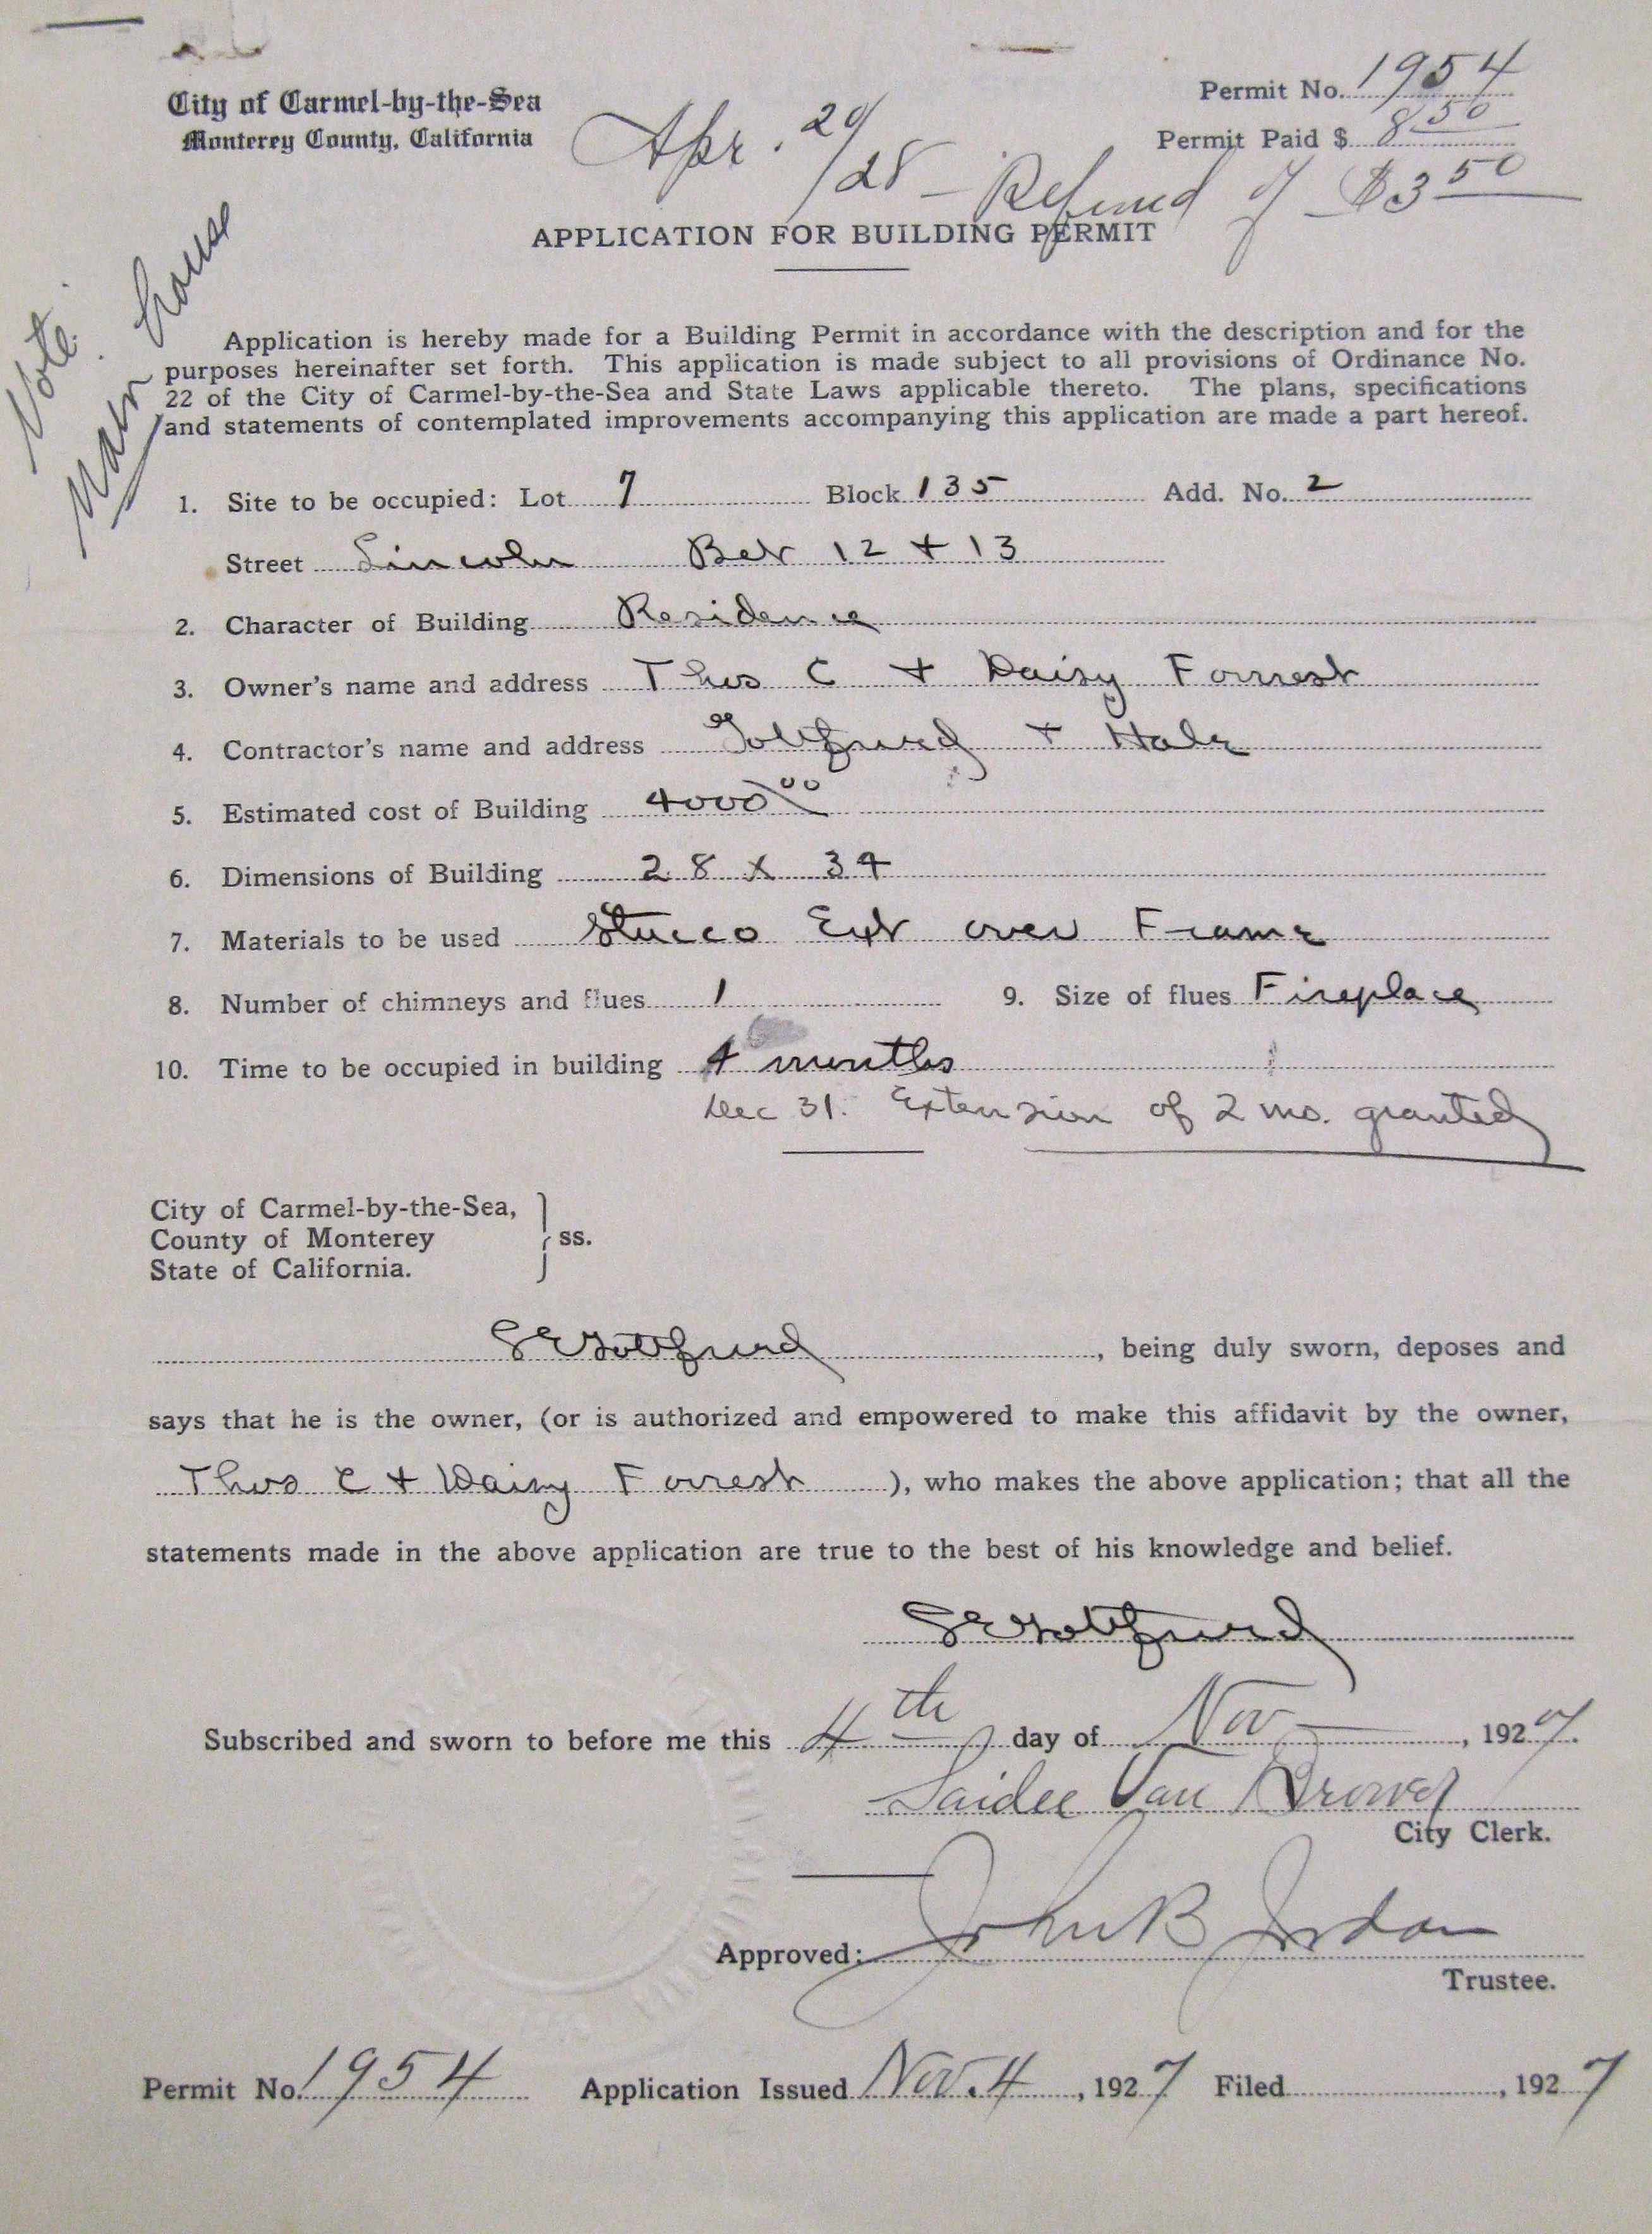 City of Carmel-by-the-Sea
Monterey County, California
Permit No. 1954
Permit Paid $ 8 50
Apr. 29/28 - Refund of $3 50
APPLICATION FOR BUILDING PERMIT
Note:
Main house
Application is hereby made for a Building Permit in accordance with the description and for the
purposes hereinafter set forth. This application is made subject to all provisions of Ordinance No.
22 of the City of Carmel-by-the-Sea and State Laws applicable thereto. The plans, specifications
and statements of contemplated improvements accompanying this application are made a part hereof.
1. Site to be occupied: Lot 7 Block 135 Add. No. 2
Street Lincoln Bet 12 + 13
2. Character of Building Residence
3. Owner's name and address Thos C + Daisy Forrest
4. Contractor's name and address Gottfried + Hale
5. Estimated cost of Building 4000 00
6. Dimensions of Building 28 x 34
7. Materials to be used Stucco Ext over Frame
8. Number of chimneys and flues 1 9. Size of flues Fireplace
10. Time to be occupied in building 4 months
Dec 31. Extension of 2 mo. granted
City of Carmel-by-the-Sea,
County of Monterey
State of California.
} ss.
Gottfried, being duly sworn, deposes and
says that he is the owner, (or is authorized and empowered to make this affidavit by the owner,
Thos C + Daisy Forrest), who makes the above application; that all the
statements made in the above application are true to the best of his knowledge and belief.
Gottfried
Subscribed and sworn to before me this 4th day of Nov, 1927.
Saidee Van Brower
City Clerk.
Approved: John B Jordan
Trustee.
Permit No. 1954 Application Issued Nov. 4, 1927 Filed, 1927